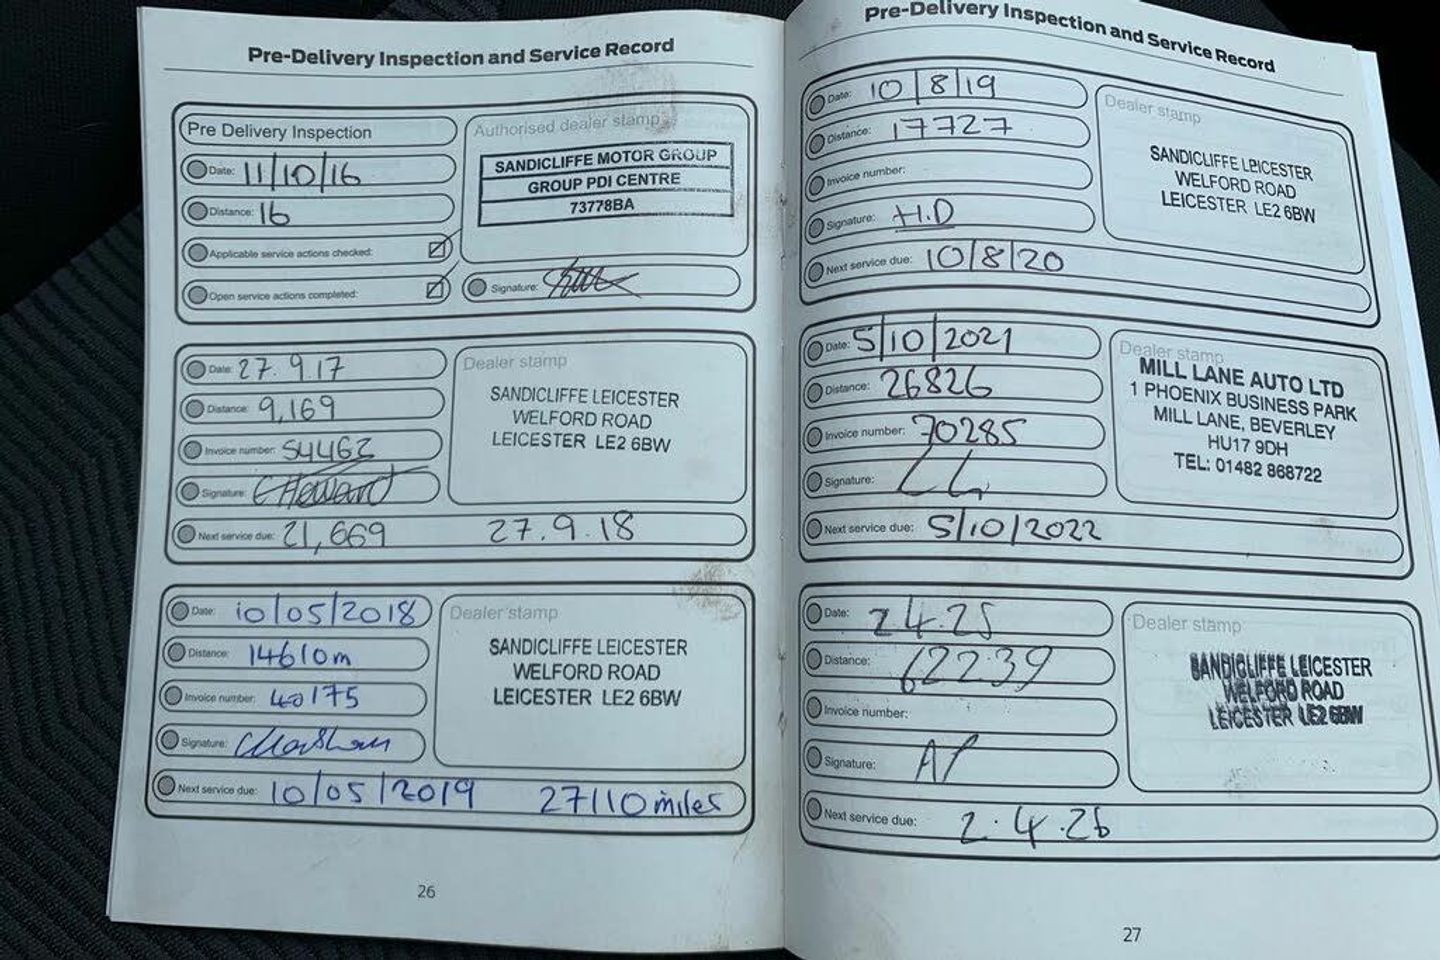 Pre-Delivery Inspection and Service Record
Pre Delivery Inspection
Date: 11/10/16
Distance: 16
Applicable service actions checked:
Open service actions completed:
Authorised dealer stamp
SANDICLIFFE MOTOR GROUP
GROUP PDI CENTRE
73778BA
Signature:
Date: 27.9.17
Distance: 9,169
Invoice number: 54463
Signature: E Howard
Next service due: 21,669 27.9.18
Dealer stamp
SANDICLIFFE LEICESTER
WELFORD ROAD
LEICESTER LE2 6BW
Date: 10/05/2018
Distance: 14610m
Invoice number: 40175
Signature:
Next service due: 10/05/2019 27110 miles
Dealer stamp
SANDICLIFFE LEICESTER
WELFORD ROAD
LEICESTER LE2 6BW
26
Pre-Delivery Inspection and Service Record
Date: 10/8/19
Distance: 17727
Invoice number:
Signature: H.D
Next service due: 10/8/20
Dealer stamp
SANDICLIFFE LEICESTER
WELFORD ROAD
LEICESTER LE2 6BW
Date: 5/10/2021
Distance: 26826
Invoice number: 70285
Signature:
Next service due: 5/10/2022
Dealer stamp
MILL LANE AUTO LTD
1 PHOENIX BUSINESS PARK
MILL LANE, BEVERLEY
HU17 9DH
TEL: 01482 868722
Date: 2.4.25
Distance: 62239
Invoice number:
Signature: AP
Next service due: 2.4.26
Dealer stamp
SANDICLIFFE LEICESTER
WELFORD ROAD
LEICESTER LE2 6BW
27